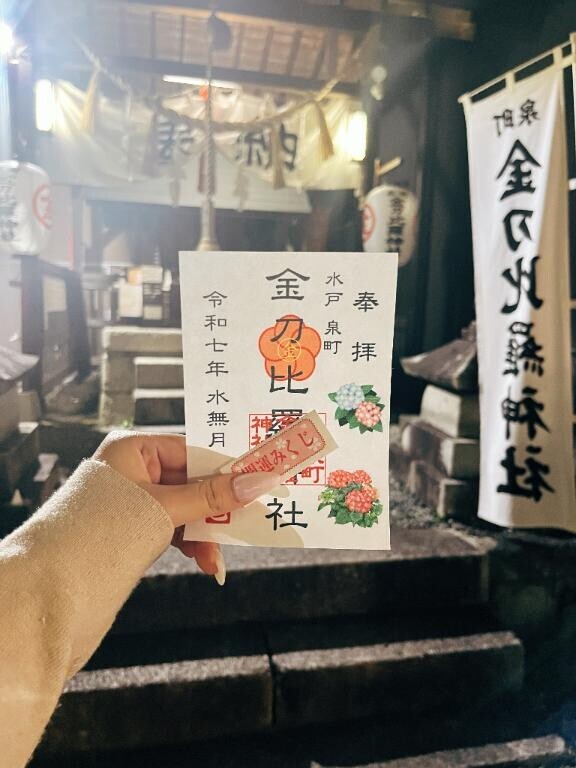 奉拝
水戸 泉町
金刀比羅
社
令和七年 水無月
金
神
町
開運みくじ
泉町
金刀比羅神社